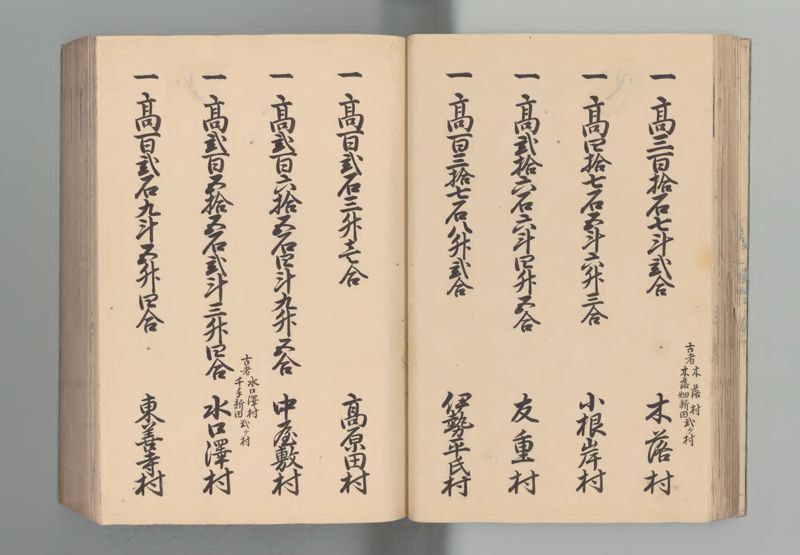 一高三百拾石七斗弐合 木落村
古者 木落村
木落畑新田弐ヶ村
一高四拾七石五斗六升三合 小根岸村
一高弐拾六石六斗四升五合 友重村
一高百三拾七石八升弐合 伊勢平氏村
一高百弐石三升七合 高原田村
一高弐百六拾五石四斗九升五合 中屋敷村
古者 水口澤村
千手新田弐ヶ村
一高弐百五拾五石弐斗三升四合 水口澤村
一高百弐石九斗五升四合 東善寺村